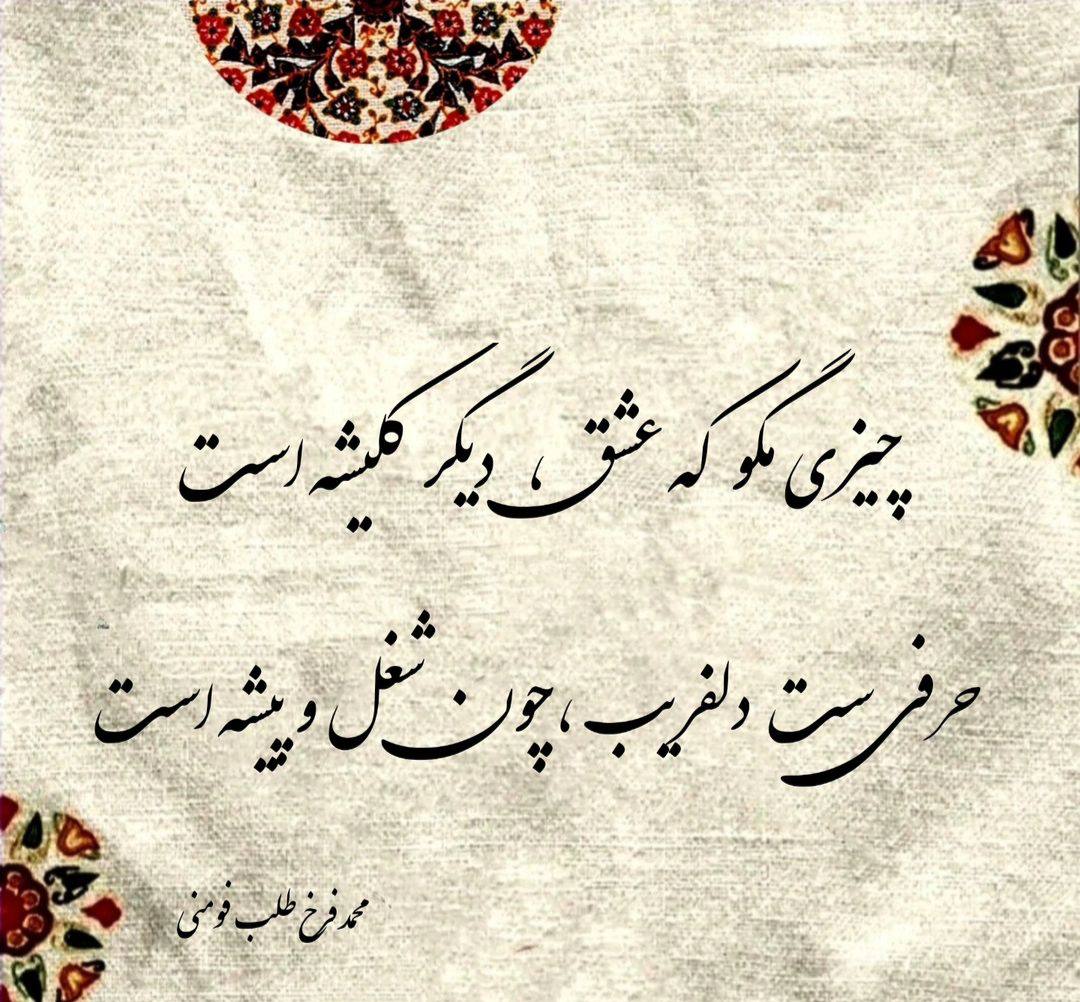 چیزی مگو که عشق، دیگر کلیشه است
حرفی ست دلفریب، چون شغل و پیشه است
محمد فرخ طلب فومنی